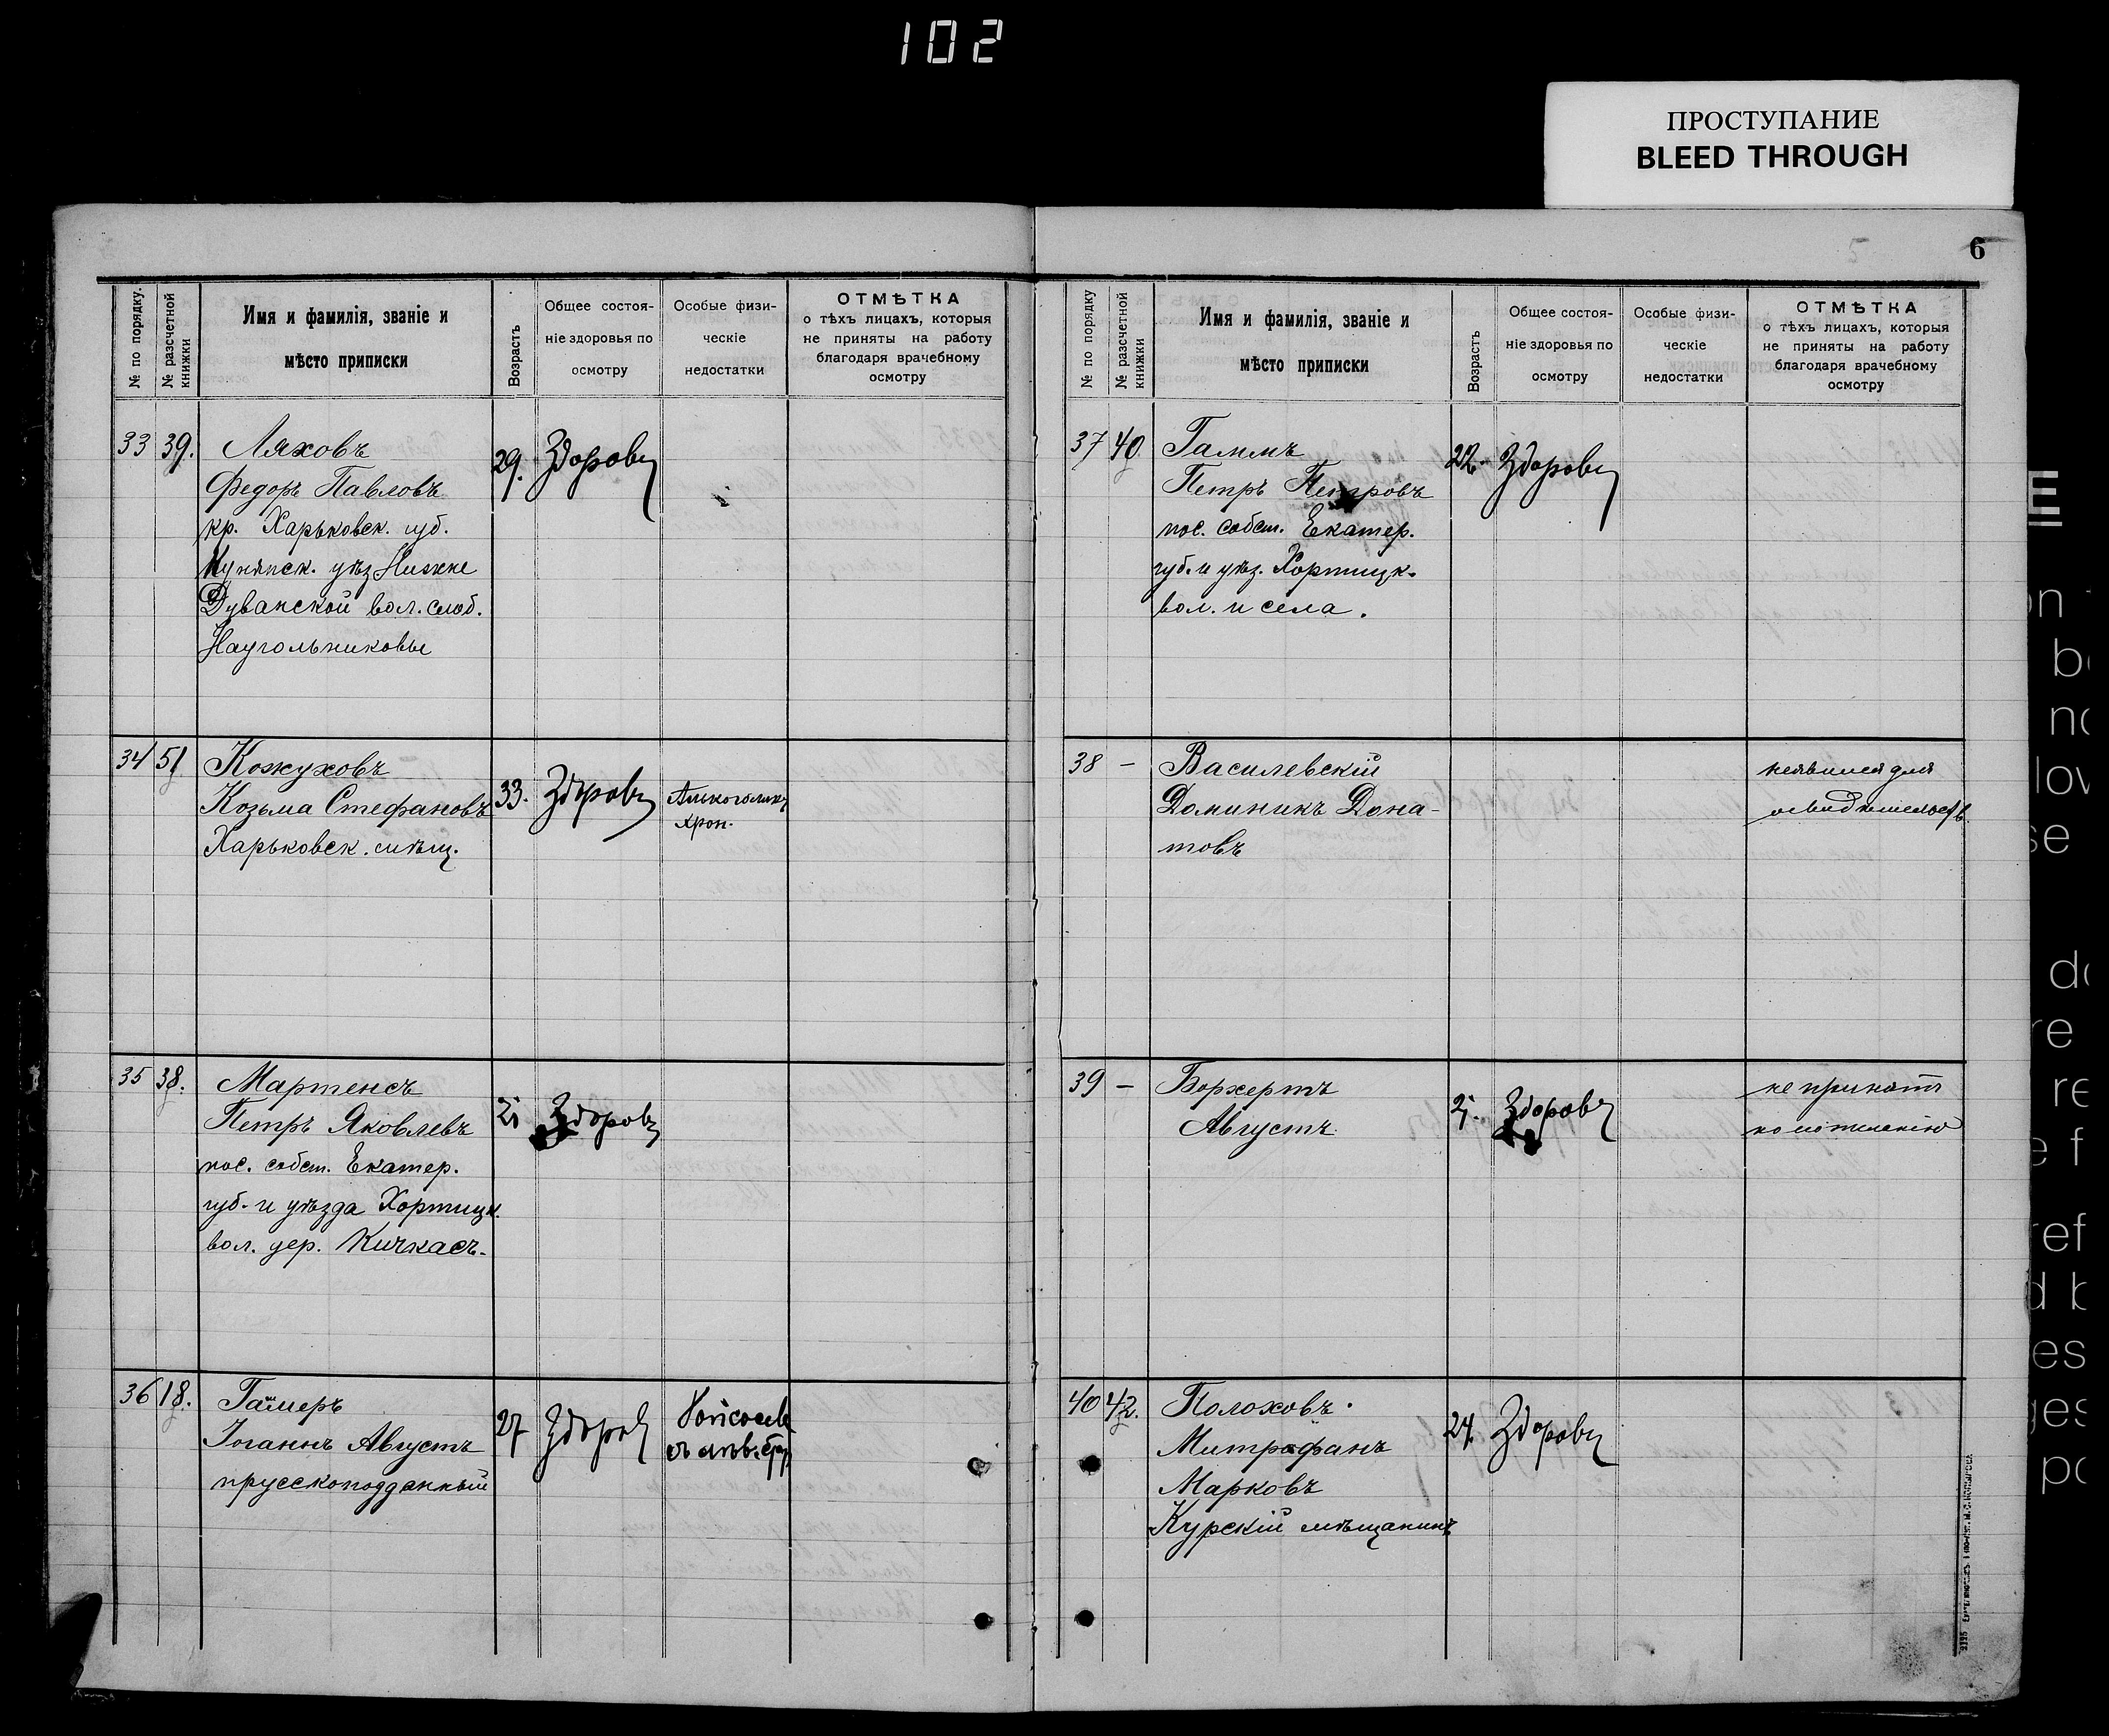 102
ПРОСТУПАНИЕ
BLEED THROUGH
6
№ по порядку.
№ разсчетной книжки
Имя и фамилія, званіе и
мѣсто приписки
Возрастъ
Общее состоя-
ніе здоровья по
осмотру
Особые физи-
ческіе
недостатки
ОТМѢТКА
о тѣхъ лицахъ, которыя
не приняты на работу
благодаря врачебному
осмотру
33 39. Ляховъ
Федоръ Павловъ 29. Здоровъ
кр. Харьковск. губ.
Купянск. уѣз Нижне
Дуванской вол. слоб.
Наугольниковы
34 51 Кожуховъ
Козьма Стефановъ 33. Здоровъ Алкоголикъ
хрон.
Харьковск. мѣщ.
35 38. Мартенсъ
Петръ Яковлевъ Здоровъ
пос. собст. Екатер.
губ. и уѣзда Хортицк.
вол. дер. Кичкасъ.
36 18.
Іоганнъ Августъ 27 Здоровъ
прусскоподданный
№ по порядку
№ разсчетной книжки
Имя и фамилія, званіе и
мѣсто приписки
Возрастъ
Общее состоя-
ніе здоровья по
осмотру
Особые физи-
ческіе
недостатки
ОТМѢТКА
о тѣхъ лицахъ, которыя
не приняты на работу
благодаря врачебному
осмотру
37 40 Гаммъ
Петръ Петровъ 22. Здоровъ
пос. собст. Екатер.
губ. и уѣз. Хортицк.
вол. и села.
38 – Василевскій неявился для
Доминикъ Дона-
товъ
39 – Борхертъ не принятъ
Августъ. Здоровъ
40 42. Полоховъ.
Митрофанъ 24. Здоровъ
Марковъ
Курскій мѣщанинъ